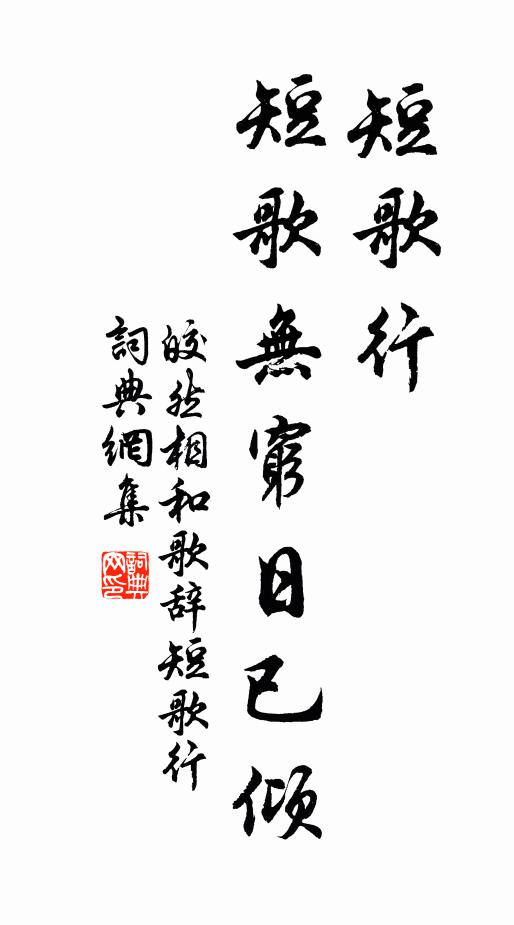 短歌行
短歌無窮日已傾
皎然相和歌辞短歌行
詞典網集
詞典
网印